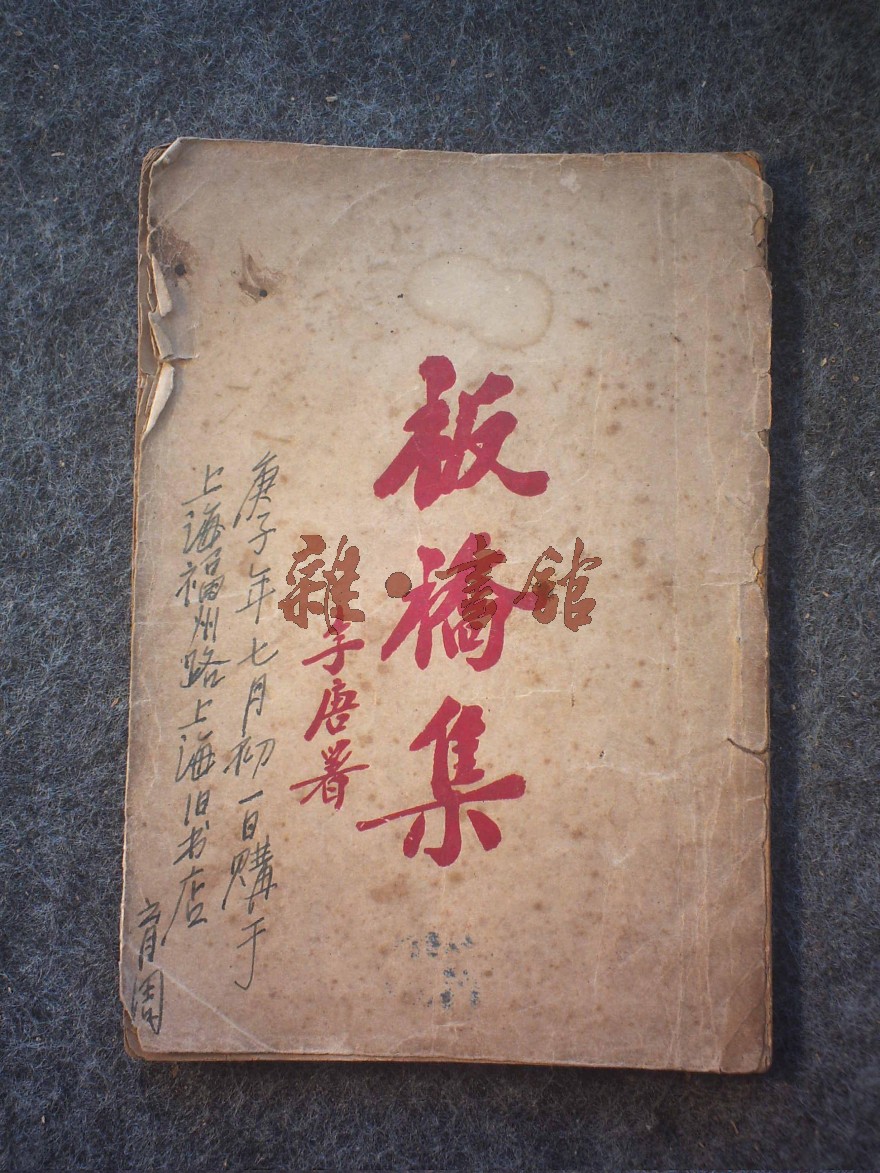 板橋集
唐署
雜·書館
庚子年七月初一日購于
上海福州路上海旧书店
育周